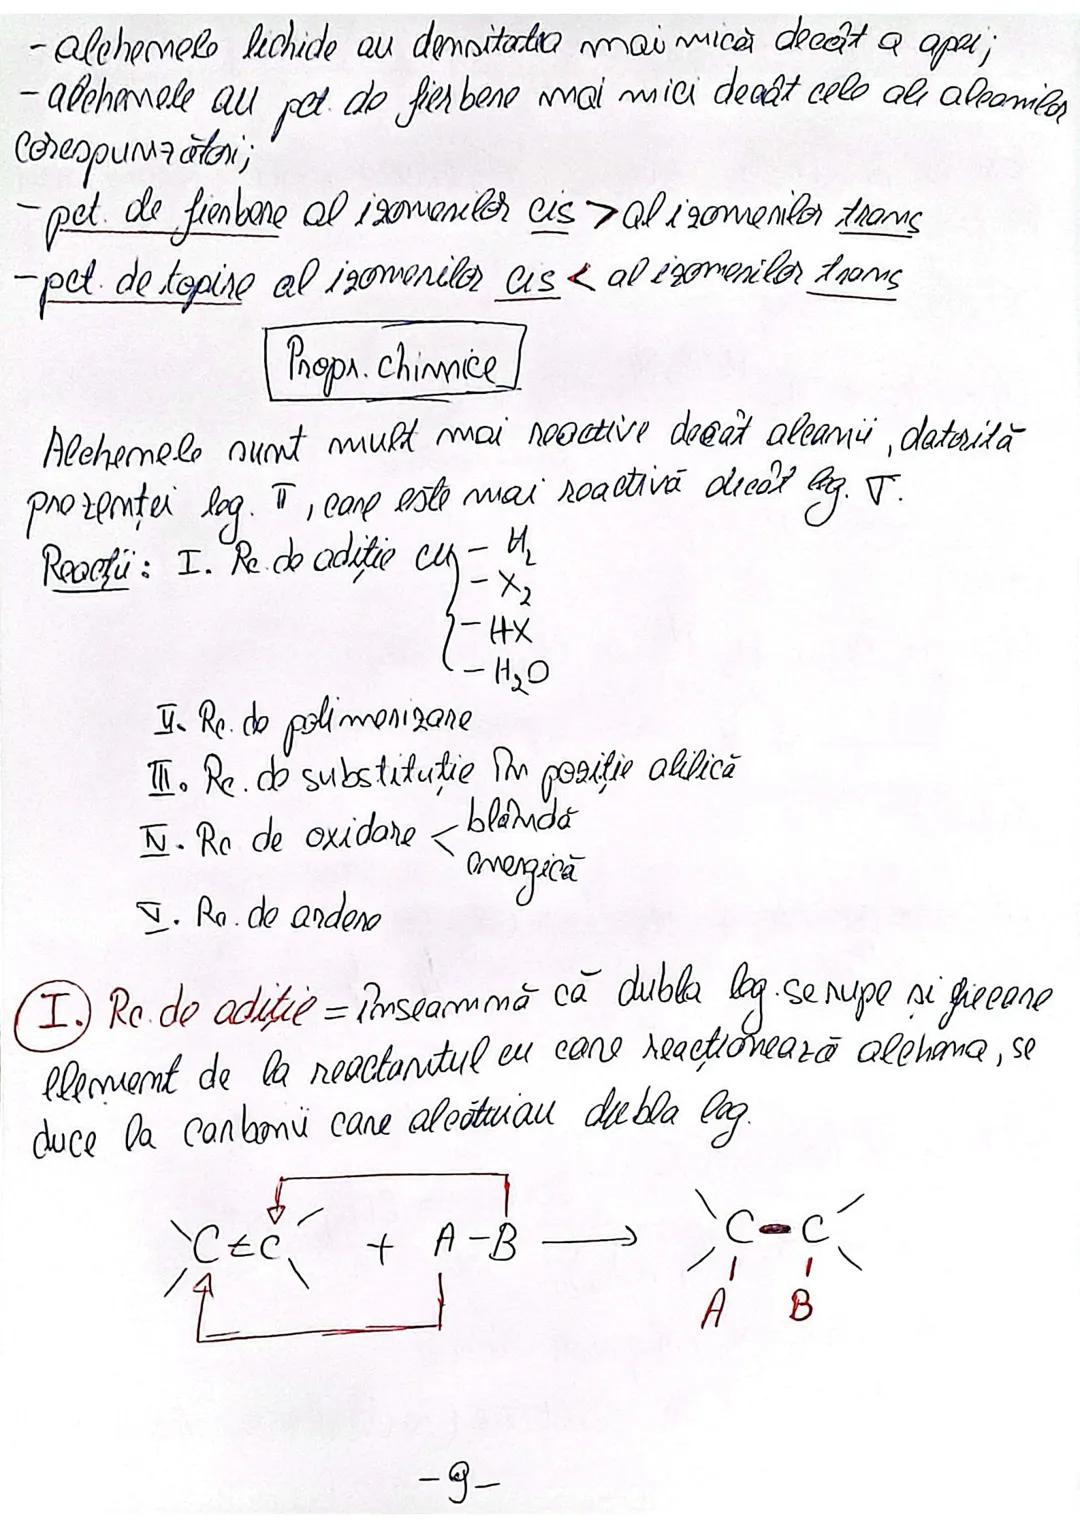 - alchenele lichide au densitatea mai mică decât a apei;
- alchenele au pct. de fierbere mai mici decât cele ale alcanilor
corespunzători;
- pct. de fierbere al izomerilor cis > al izomerilor trans
- pct. de topire al izomerilor cis < al izomerilor trans
Propr. chimice
Alchenele sunt mult mai reactive decât alcanii, datorită
prezenței leg. π, care este mai reactivă decât leg. σ.
Reacții: I. Rc. de adiție cu - H₂
- X₂
- HX
- H₂O
II. Rc. de polimerizare
III. Rc. de substituție în poziție alilică
IV. Rc de oxidare < blândă
energică
V. Rc. de ardere
I. Rc. de adiție = înseamnă că dubla leg. se rupe și fiecare
element de la reactantul cu care reacționează alchena, se
duce la carbonii care alcătuiau dubla leg.
C = C + A - B → C - C
A B
- 9 -